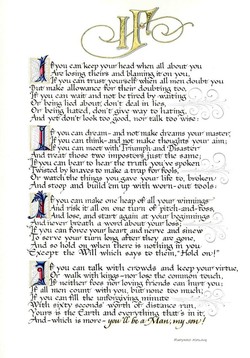 If
If you can keep your head when all about you
Are losing theirs and blaming it on you,
If you can trust yourself when all men doubt you
But make allowance for their doubting too,
If you can wait and not be tired by waiting
Or being lied about, don't deal in lies,
Or being hated, don't give way to hating,
And yet don't look too good, nor talk too wise:
If you can dream-and not make dreams your master;
If you can think-and not make thoughts your aim;
If you can meet with Triumph and Disaster
And treat those two impostors just the same;
If you can bear to hear the truth you've spoken
Twisted by knaves to make a trap for fools,
Or watch the things you gave your life to, broken,
And stoop and build 'em up with worn-out tools:
If you can make one heap of all your winnings
And risk it all on one turn of pitch-and-toss,
And lose, and start again at your beginnings
And never breath a word about your loss;
If you can force your heart and nerve and sinew
To serve your turn long after they are gone,
And so hold on when there is nothing in you
Except the Will which says to them, "Hold on!"
If you can talk with crowds and keep your virtue,
Or walk with kings-nor lose the common touch,
If neither foes nor loving friends can hurt you;
If all men count with you, but none too much;
If you can fill the unforgiving minute
With sixty seconds' worth of distance run,
Yours is the Earth and everything that's in it,
And-which is more-you'll be a Man, my son!